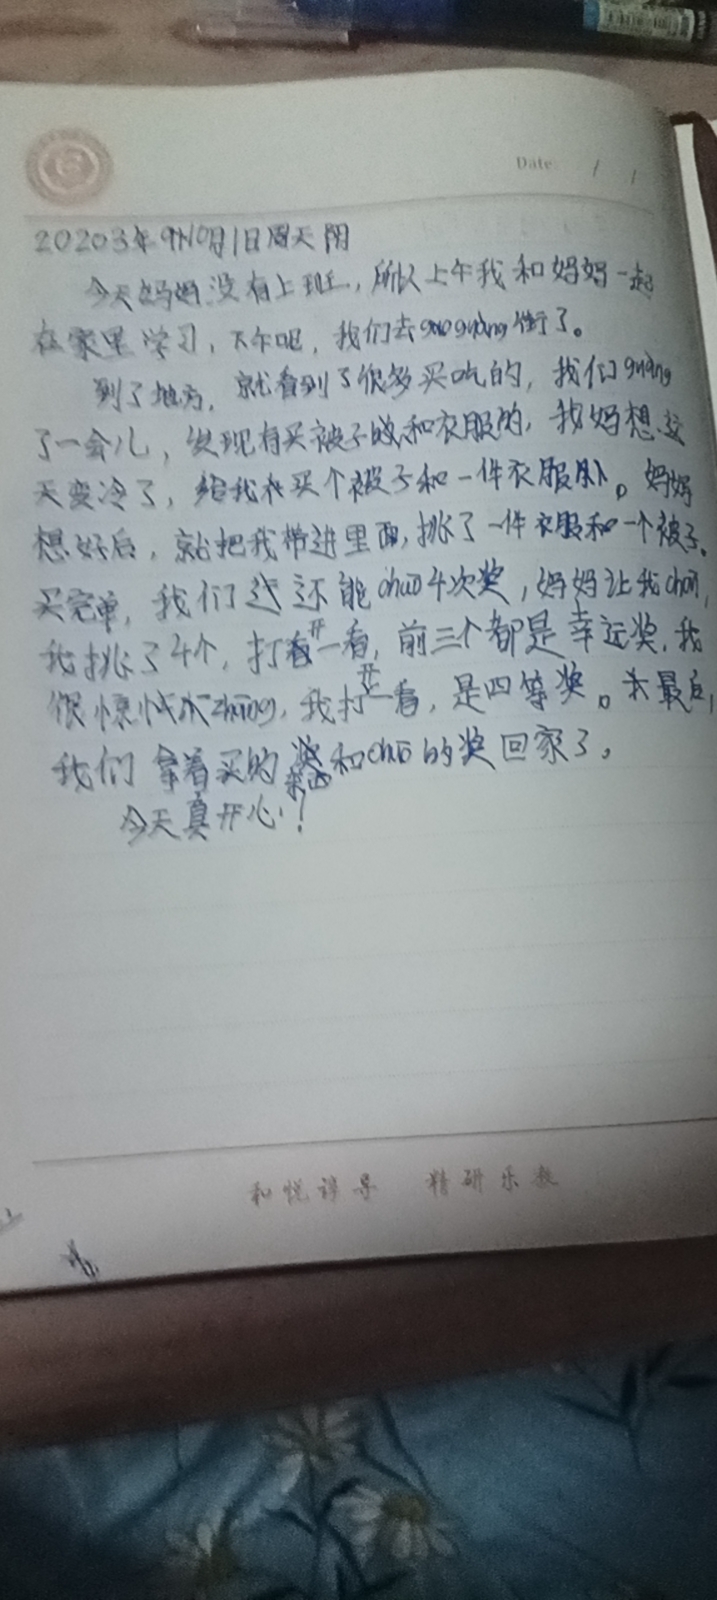 Date / /
20203年9月10月1日周天 阴
今天妈妈没有上班，所以上午我和妈妈一起
在家里学习，下午呢，我们去guàng街了。
到了地方，就看到了很多买吃的，我们guàng
了一会儿，发现有买被子的和衣服的，我妈想这
天变冷了，给我在买个被子和一件衣服吧。妈妈
想好后，就把我带进里面，挑了一件衣服和一个被子。
买完单，我们还能chōu4次奖，妈妈让我chōu，
我挑了4个，打开一看，前三个都是幸运奖，我
很惊，我打开一看，是四等奖。最后，
我们拿着买的东西和chōu的奖回家了。
今天真开心！
和悦谆导 精研乐教